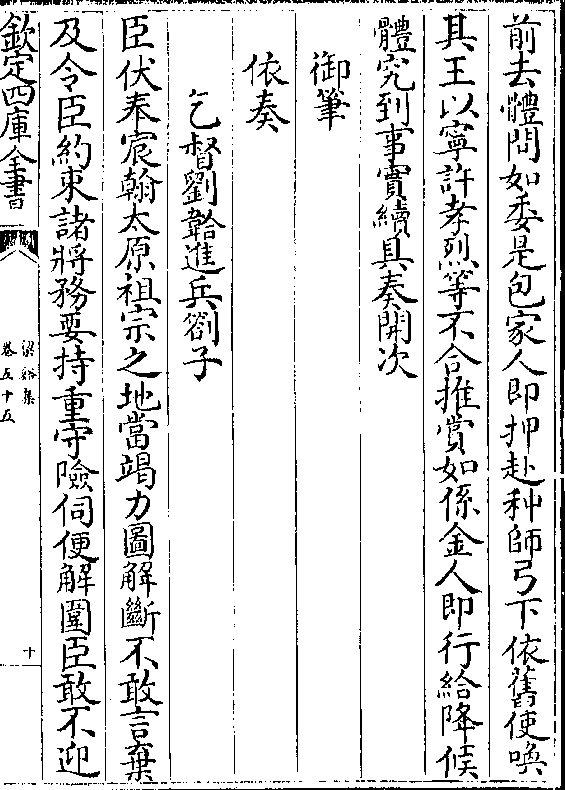 前去體問如委是包家人即押赴种師弓下依舊使喚
其王以寧許孝烈等不合推賞如係金人即行給降候
體究到事實續具奏聞次
御筆
依奏
乞督劉韐進兵劄子
臣伏奉宸翰太原祖宗之地當竭力圖解斷不敢言棄
及令臣約束諸將務要持重守險伺便解圍臣敢不迎
欽定四庫全書
梁谿集
卷五十五
十